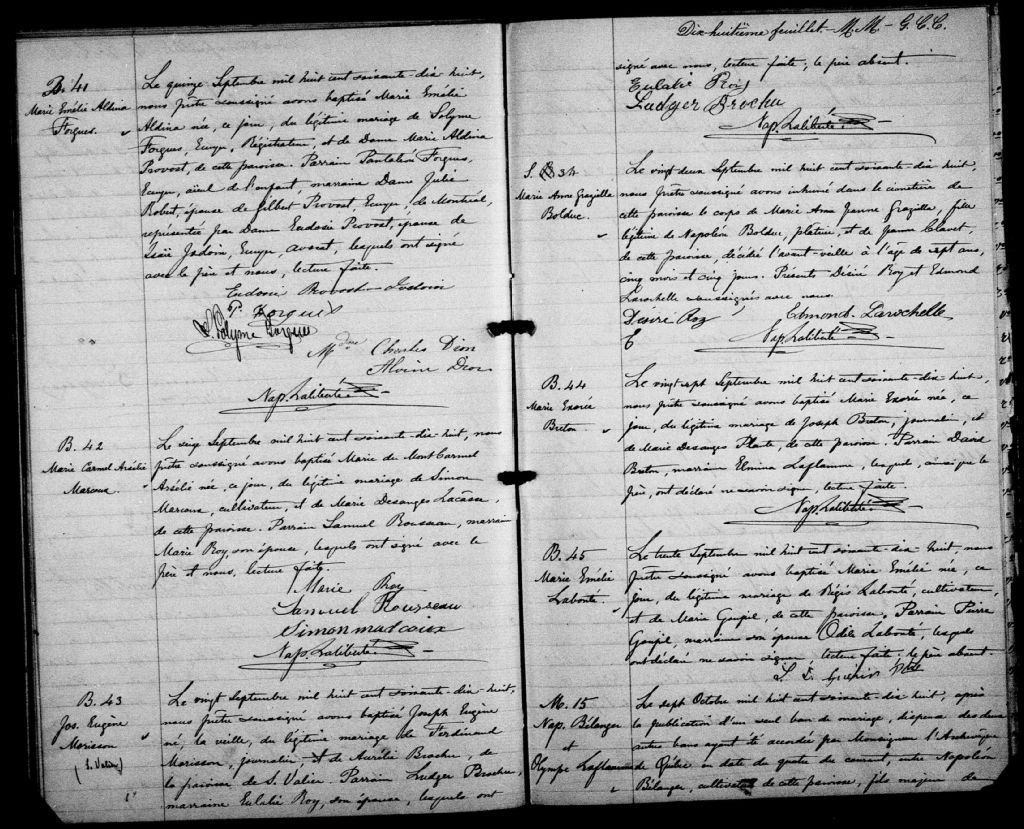 B. 41
Marie Emélie Aldina
Forgues.
Le quinze Septembre mil huit cent soixante-dix-huit,
nous prêtre soussigné avons baptisé Marie Emélie
Aldina née, ce jour, du légitime mariage de Solyme
Forgues, Ecuyer, Régistrateur, et de Dame Marie Aldina
Provost, de cette paroisse. Parrain Pantaléon Forgues,
Ecuyer, aïeul de l'enfant, marraine Dame Julie
Robert, épouse de Gilbert Provost, Ecuyer, de Montréal,
représentée par Dame Eudoxie Provost, épouse de
Isaïe Jodoin, Ecuyer, avocat, lesquels ont signé
avec le père et nous, lecture faite.
Eudoxie Provost-Jodoin
P. Forgues
S. Solyme Forgues
Mdme Charles Dion
Alvine Dion
Nap. Laliberté Ptre
B. 42
Marie Carmel Arsélie
Marcoux
Le seize Septembre mil huit cent soixante-dix-huit, nous
prêtre soussigné avons baptisé Marie du Mont Carmel
Arsélie née, ce jour, du légitime mariage de Simon
Marcoux, cultivateur, et de Marie Desanges Lacasse,
de cette paroisse. Parrain Samuel Rousseau, marraine
Marie Roy, son épouse, lesquels ont signé avec le
père et nous, lecture faite.
Marie Roy
Samuel Rousseau
Simon marcoux
Nap. Laliberté Ptre
B. 43
Jos. Eugène
Morisson
(S. Valier)
Le vingt Septembre mil huit cent soixante-dix-huit,
nous prêtre soussigné avons baptisé Joseph Eugène
né, la veille, du légitime mariage de Ferdinand
Morisson, journalier, et de Aurélie Brochu, de
la paroisse de S. Valier. Parrain Ludger Brochu,
marraine Eulalie Roy, son épouse, lesquels ont
Dix-huitième feuillet. M. M. G. C. C.
signé avec nous, lecture faite, le père absent.
Eulalie Roy
Ludger Brochu
Nap. Laliberté Ptre
S. 34
Marie Anne Grazille
Bolduc.
Le vingt-deux Septembre mil huit cent soixante-dix-huit,
nous prêtre soussigné avons inhumé dans le cimetière de
cette paroisse le corps de Marie Anna Jeanne Grazilla, fille
légitime de Napoléon Bolduc, platrier, et de Jeanne Clavet,
de cette paroisse, décédée l'avant-veille à l'âge de sept ans,
cinq mois et cinq jours. Présents Désiré Roy et Edmond
Larochelle soussignés avec nous.
Desire Roy Edmond. Larochelle
Nap. Laliberté Ptre
B. 44
Marie Exorée
Breton
Le vingt-sept Septembre mil huit cent soixante-dix-huit,
nous prêtre soussigné avons baptisé Marie Exorée née, ce
jour, du légitime mariage de Joseph Breton, journalier, et
de Marie Desanges Plante, de cette paroisse. Parrain David
Breton, marraine Elmina Laflamme, lesquels, ainsi que le
père, ont déclaré ne savoir signer, lecture faite.
Nap. Laliberté Ptre
B. 45
Marie Emélie
Labonté
Le trente Septembre mil huit cent soixante-dix-huit, nous
prêtre soussigné avons baptisé Marie Emélie née, ce
jour, du légitime mariage de Régis Labonté, cultivateur,
et de Maria Goupil, de cette paroisse. Parrain Pierre
Goupil, marraine son épouse Odile Labonté, lesquels
ont déclaré ne savoir signer, lecture faite, le père absent.
M. 15
Nap. Bélanger
et
Olympe Laflamme
Le sept Octobre mil huit cent soixante-dix-huit, après
la publication d'un seul ban de mariage, dispense des deux
autres bans ayant été accordée par Monseigneur l'Archevêque
de Québec en date du quatre du courant, entre Napoléon
Bélanger, cultivateur de cette paroisse, fils majeur de